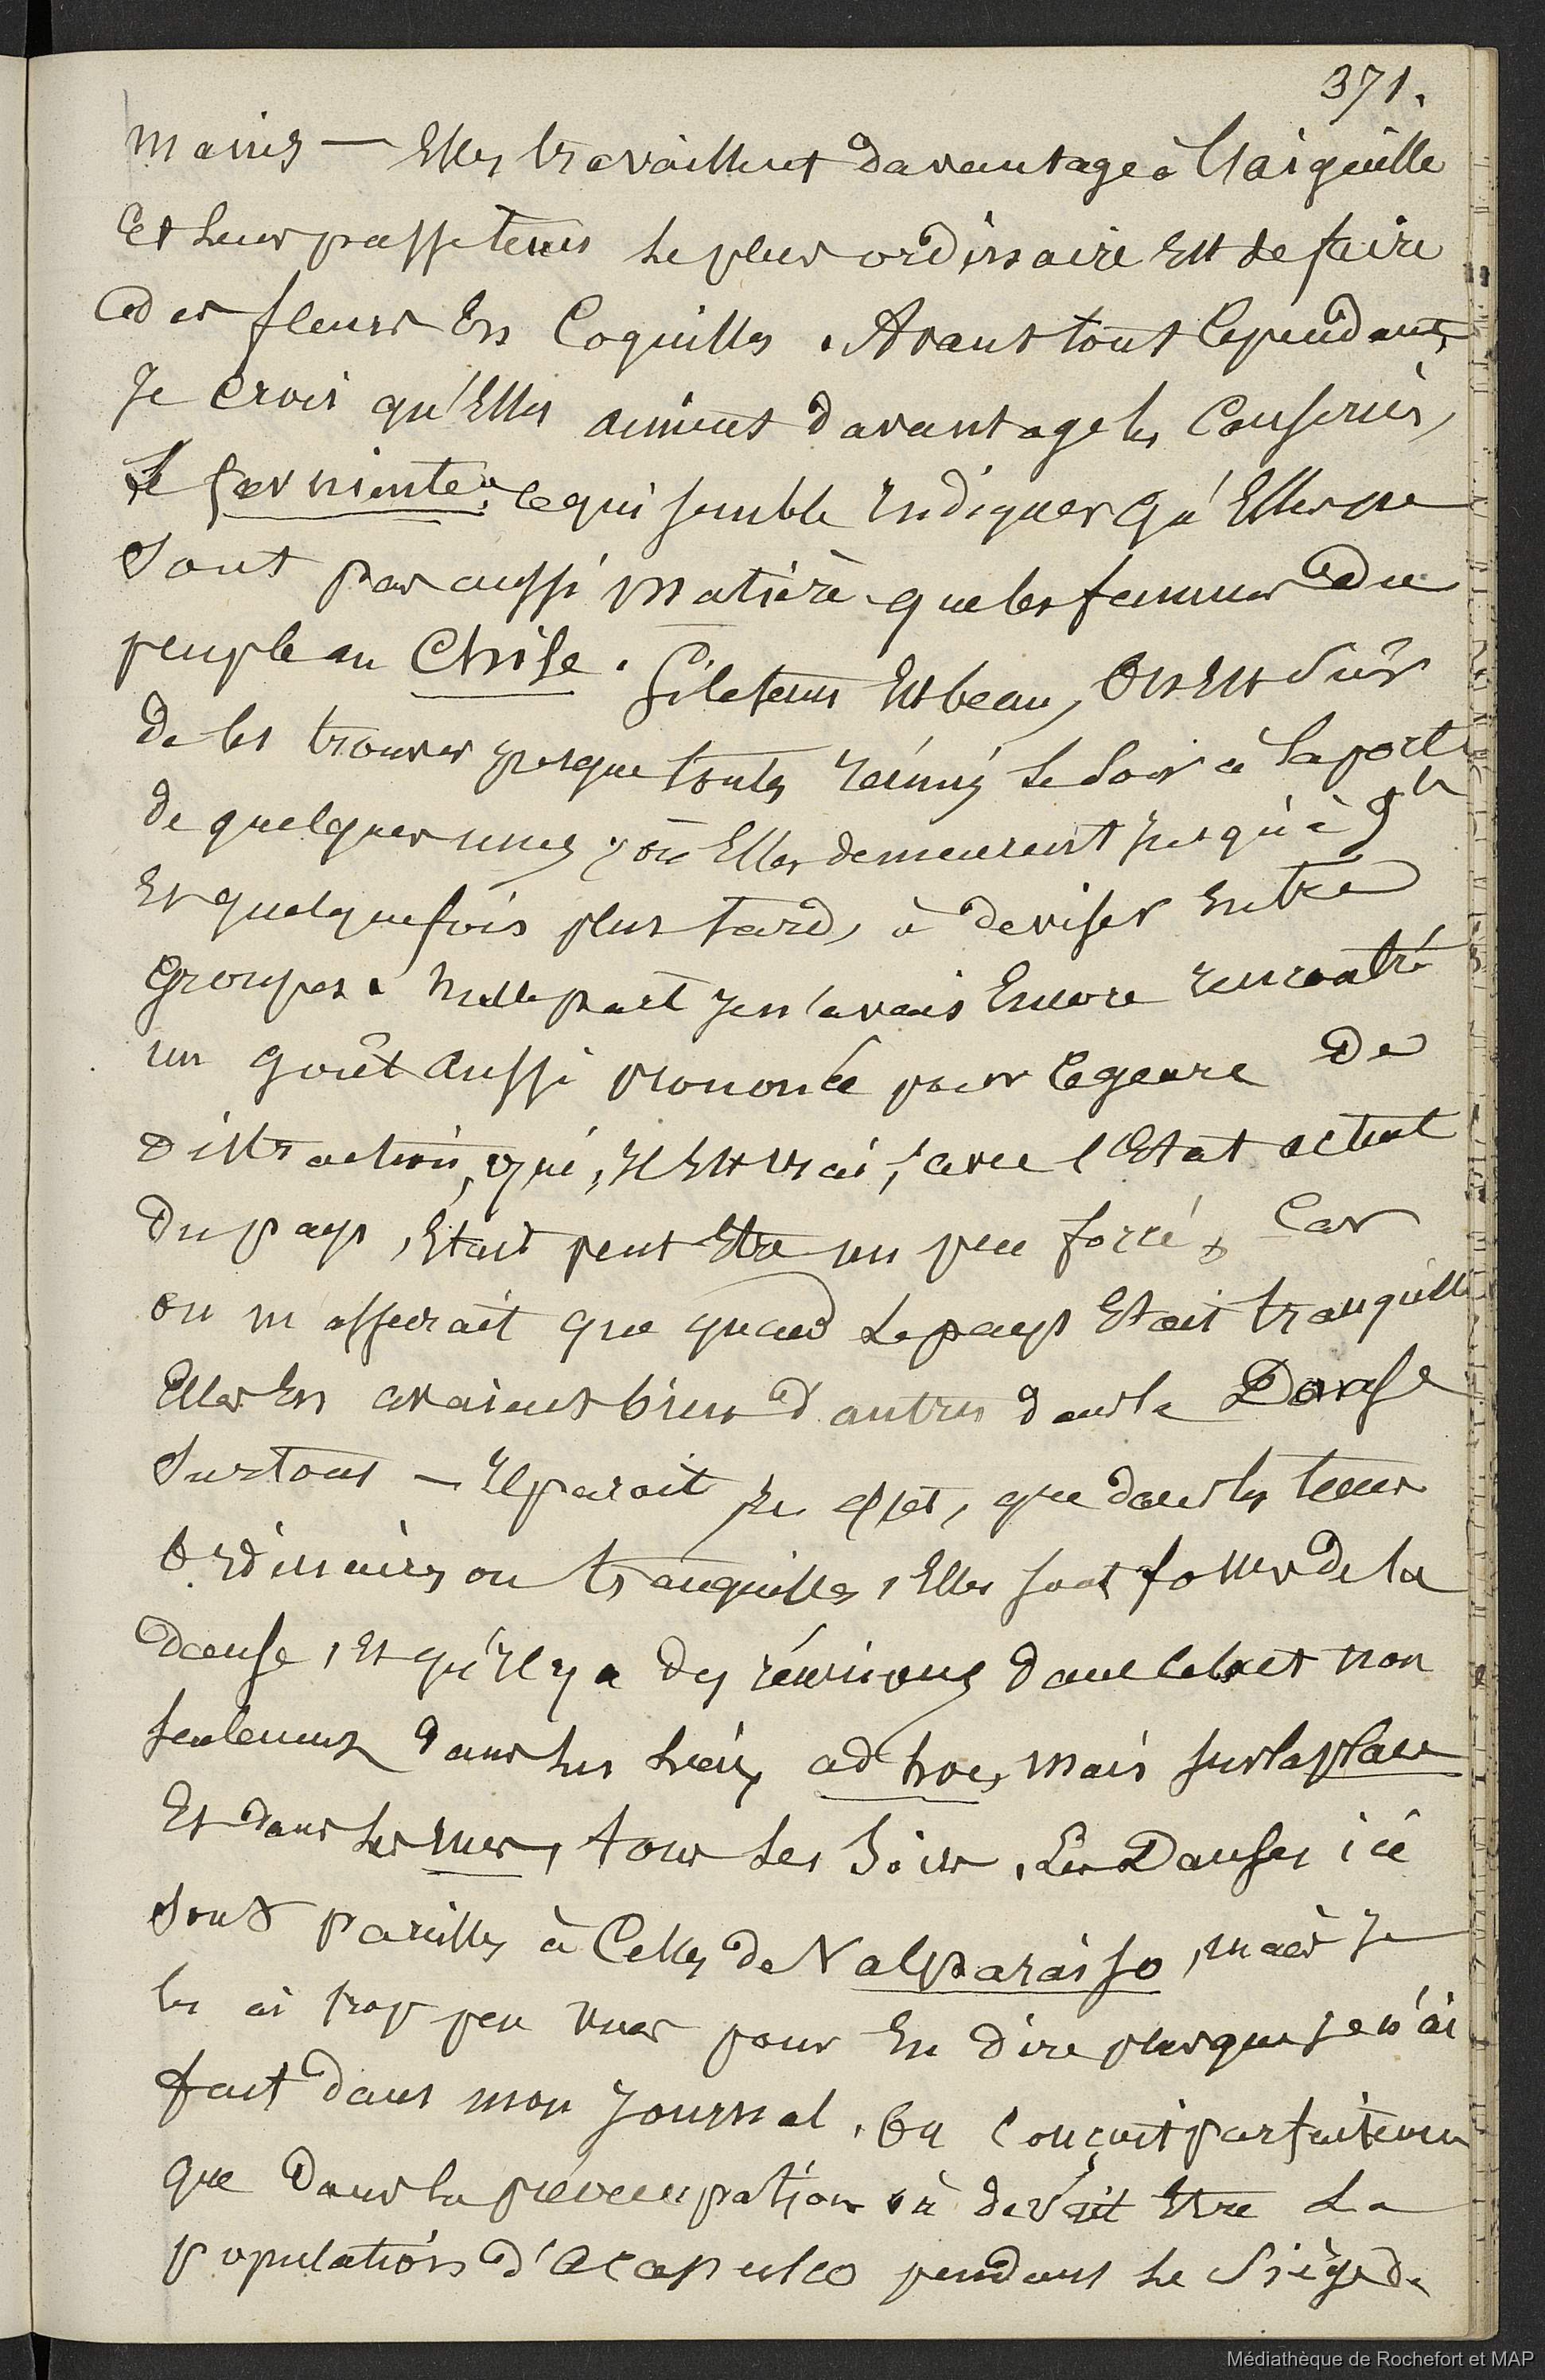 371.
mains — Elles travaillent davantage à l'aiguille
Et leur passetems le plus ordinaire Est de faire
des fleurs En Coquilles. Avant tout Cependant,
Je Crois qu'Elles aiment davantage les Causeries,
Le far niente; Ce qui semble Indiquer qu'Elles ne
sont pas aussi matière que les femmes du
peuple au Chile. Si le tems Est beau, On Est Sûr
de les trouver presque toutes réunies le Soir à la porte
de quelques unes, où Elles demeurent jusqu'à 9h
Et quelquefois plus tard, à deviser Entre
Groupes. Nulle part je n'avais Encore rencontré
un goût aussi prononcé pour Ce genre de
distraction, qui, Il Est vrai, avec l'Etat actuel
du pays, Etait peut Etre un peu forcé, Car
on m'assurait que quand Le pays Etait tranquille
Elles En avaient bien d'autres dans la Danse
Surtout — Il parait En effet, que dans les tems
Ordinaires ou tranquilles, Elles sont folles de la
danse, Et qu'Il y a des réunions dans Ce but non
seulement dans les Lieux ad hoc, mais sur la place
Et dans les rues, tous les Soirs. Les Danses ici
sont pareilles à Celles de Valparaiso, mais Je
les ai trop peu vues pour En dire plus que je n'ai
fait dans mon Journal. On Conçoit parfaitemen
que dans la préoccupation où devait Etre La
population d'Acapulco pendant le Siège de
Médiathèque de Rochefort et MAP